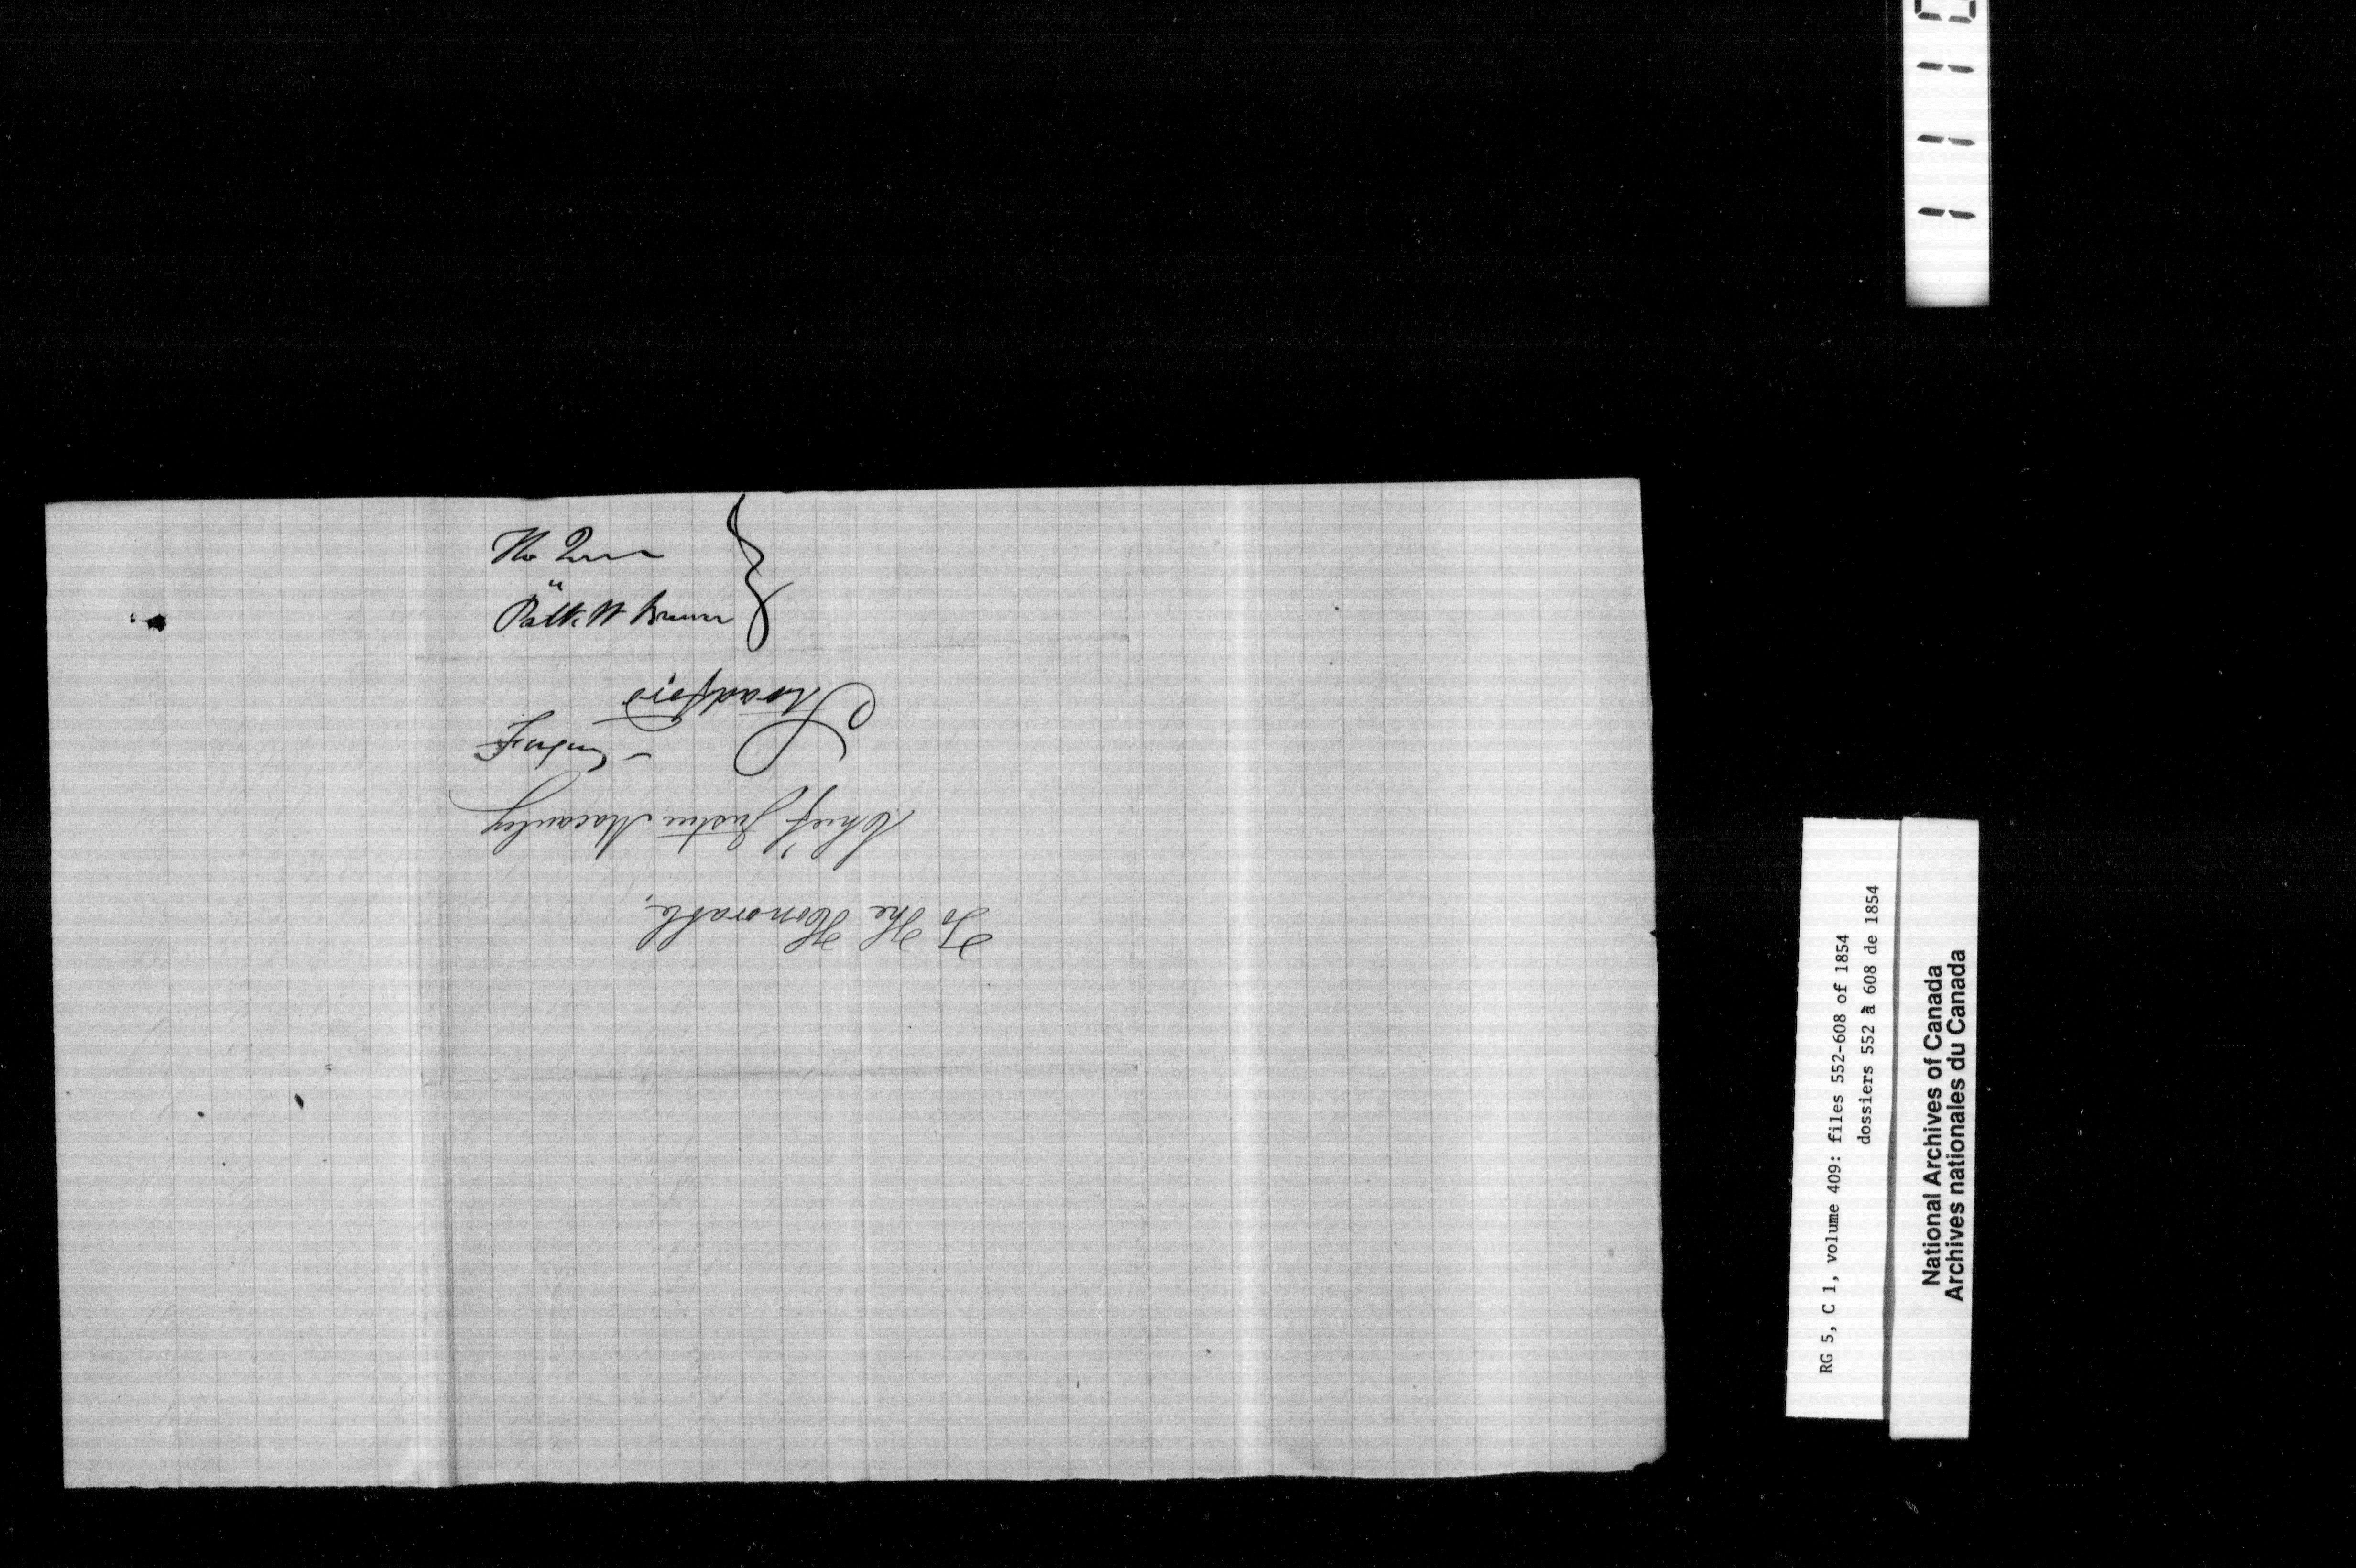 The Queen
"
Patk. W Brewer
To The Honorable,
Chief Justice Macauley
Brantford
RG 5, C 1, volume 409: files 552-608 of 1854
dossiers 552 à 608 de 1854
National Archives of Canada
Archives nationales du Canada